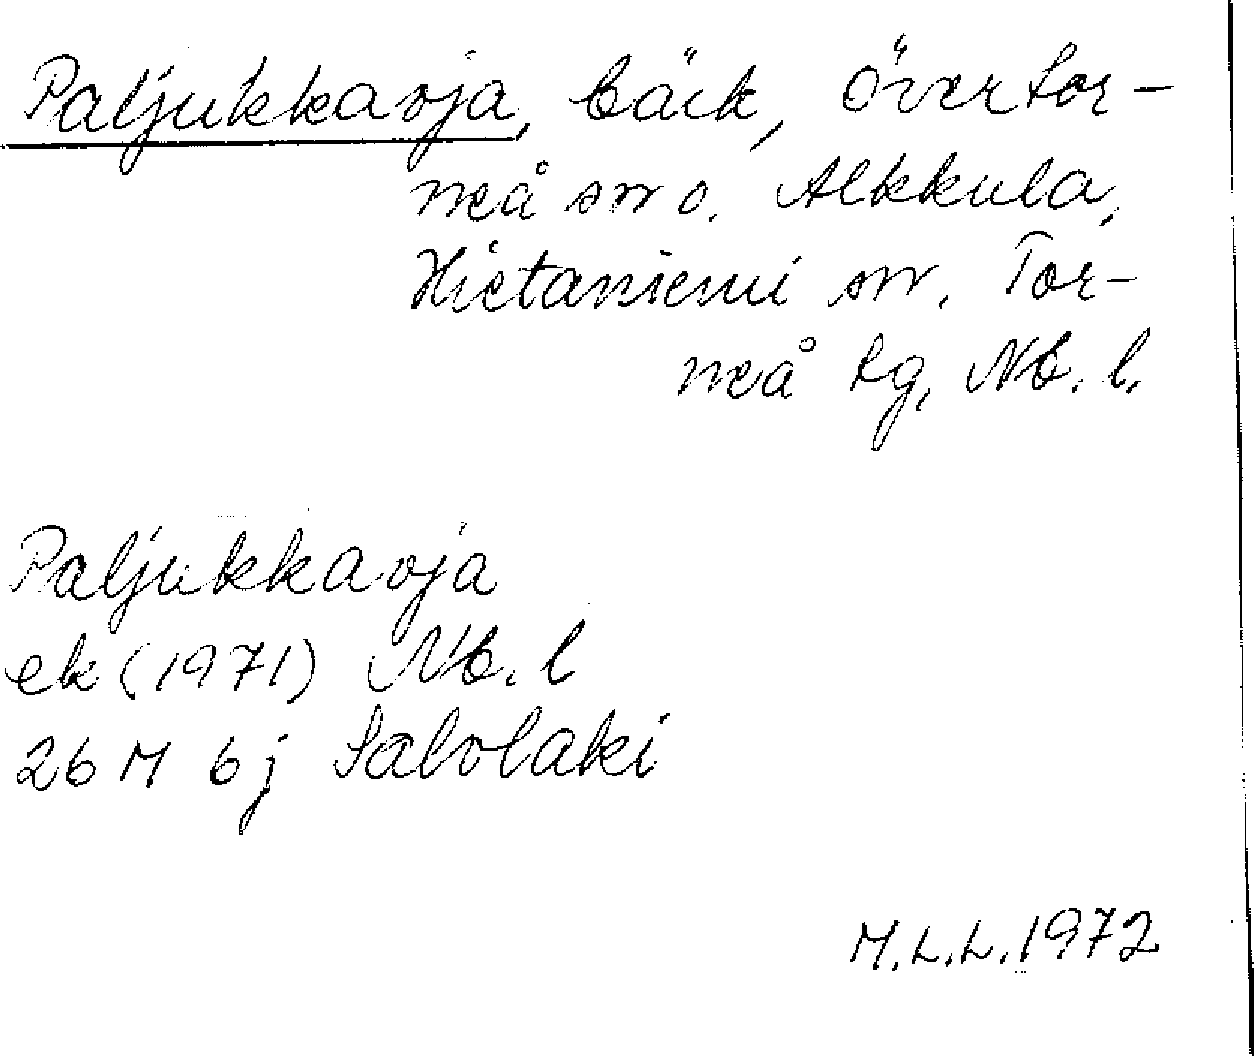 Paljukkaoja, bäck, Övertor-
neå sn o. Alkkula,
Hietaniemi sn. Tor-
neå tg, Nb. l.
Paljukkaoja
ek (1971) Nb. l
26 M 6 j Salolaki
M.L.L. 1972